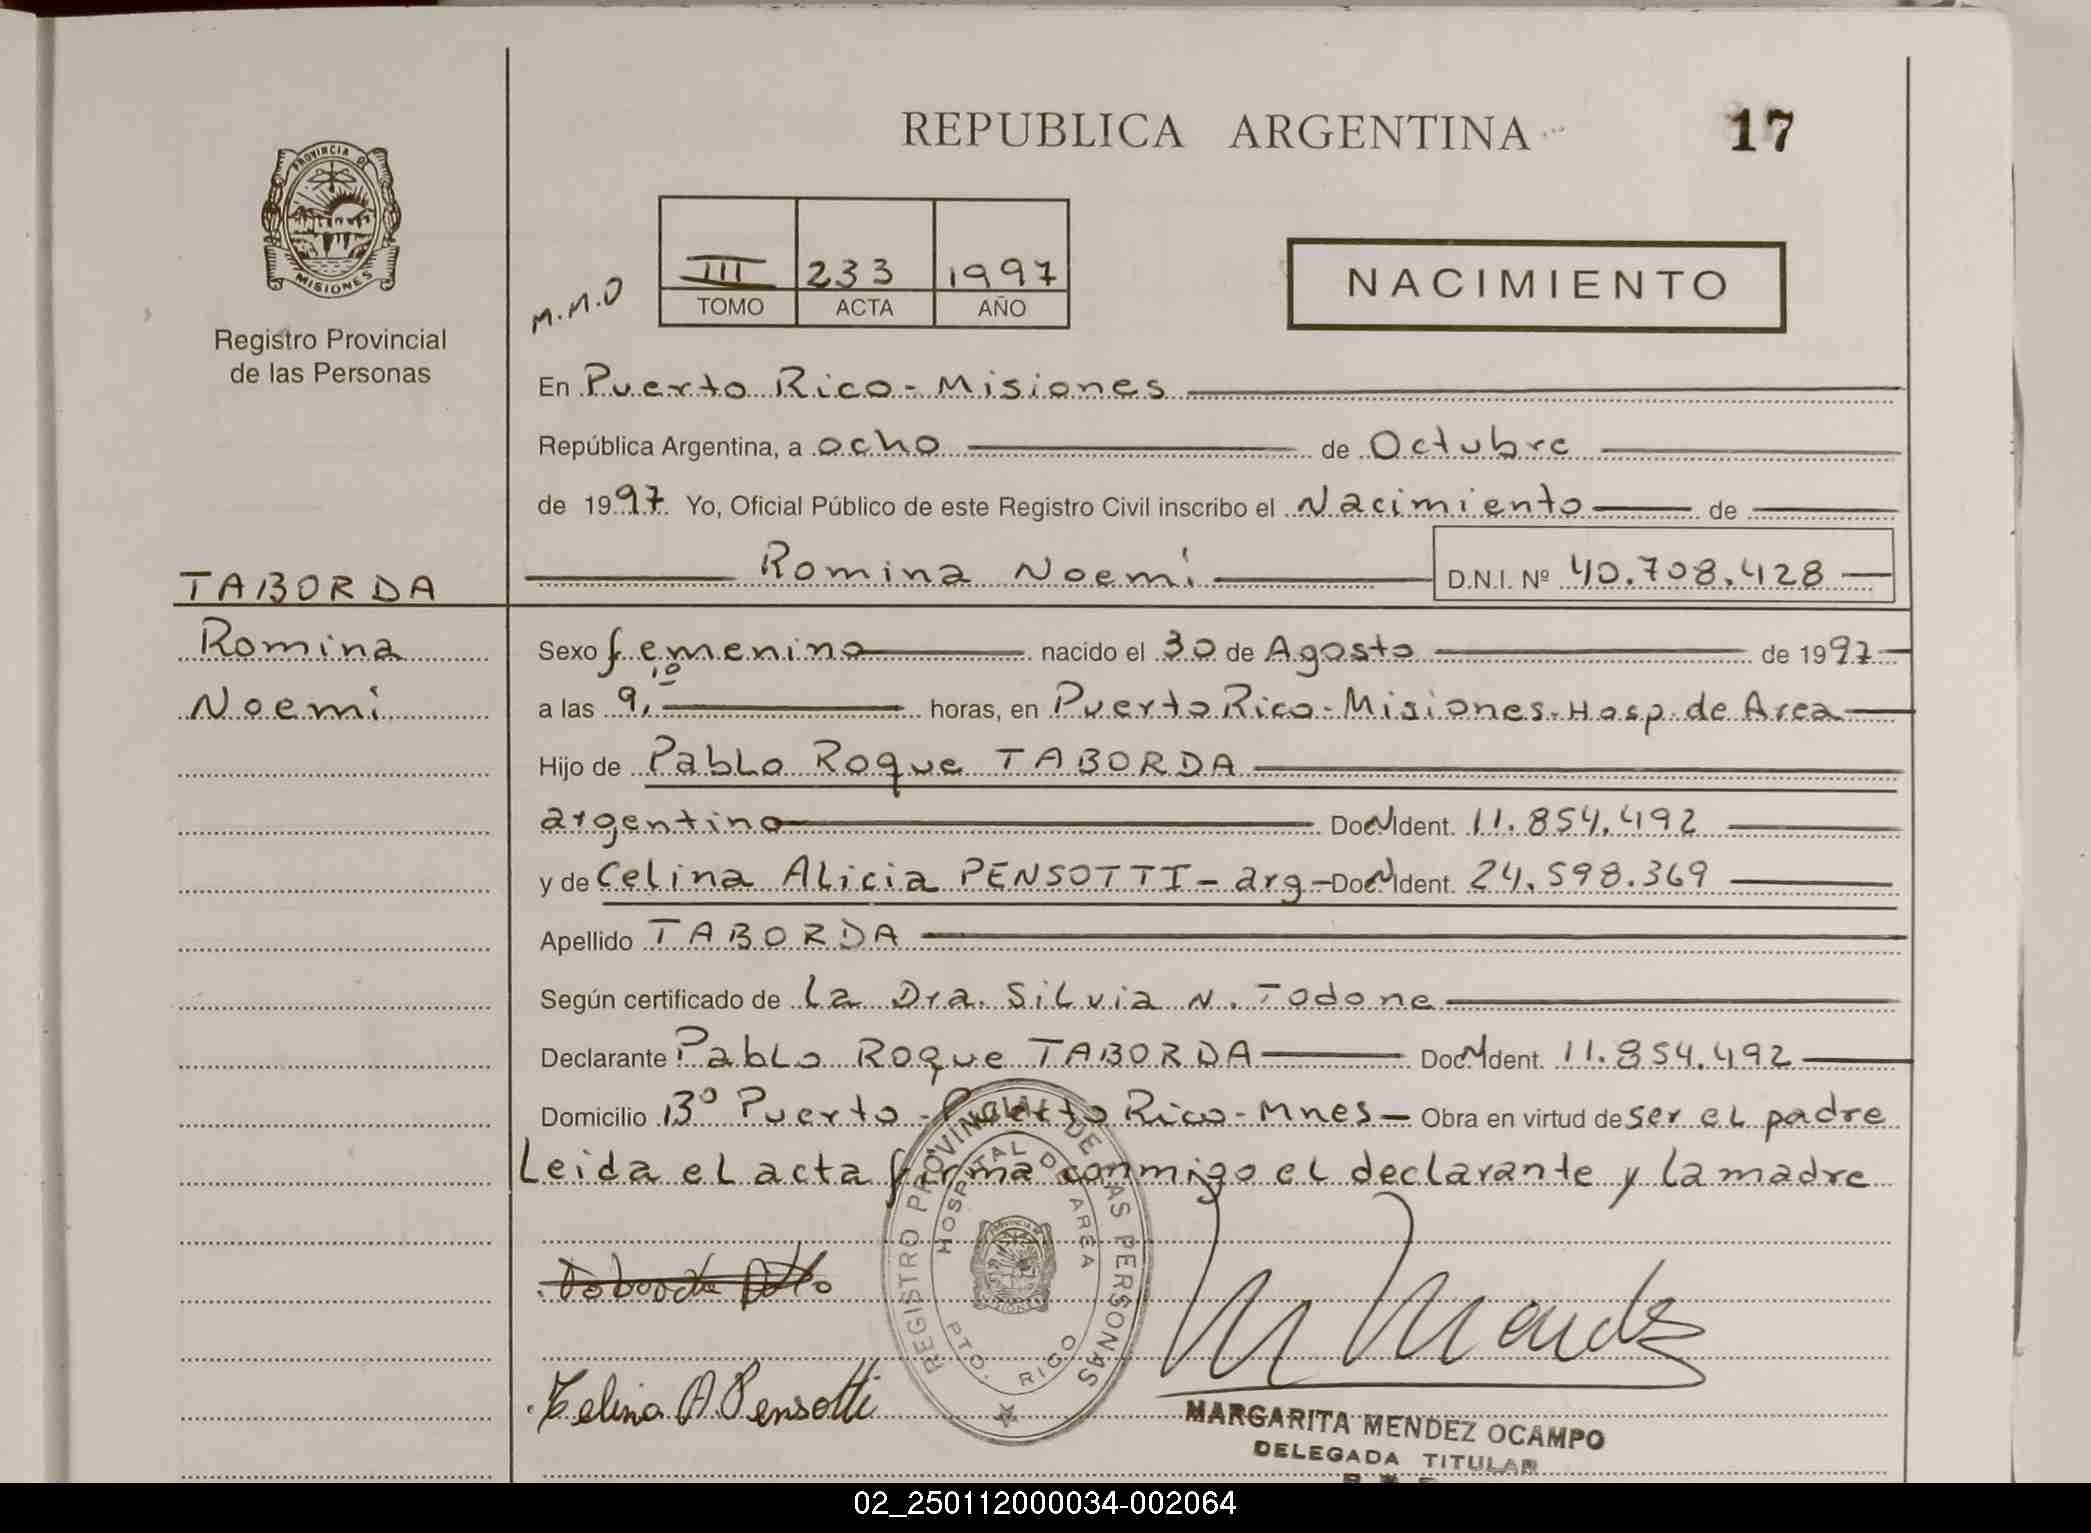 REPUBLICA ARGENTINA 17
PROVINCIA DE
MISIONES
Registro Provincial
de las Personas
M.M.O
III 233 1997
TOMO ACTA AÑO
NACIMIENTO
En Puerto Rico - Misiones
República Argentina, a ocho de Octubre
de 1997 Yo, Oficial Público de este Registro Civil inscribo el Nacimiento de
TABORDA
Romina
Noemi
Romina Noemí D.N.I. Nº 40.708.428
Sexo femenino nacido el 30 de Agosto de 1997
a las 9,10 horas, en Puerto Rico - Misiones - Hosp. de Area
Hijo de Pablo Roque TABORDA
argentino Doc N Ident. 11.854.492
y de Celina Alicia PENSOTTI - arg - Doc N Ident. 24.598.369
Apellido TABORDA
Según certificado de la Dra. Silvia N. Todone
Declarante Pablo Roque TABORDA Doc N Ident. 11.854.492
Domicilio Bº Puerto - Puerto Rico - Mnes - Obra en virtud de ser el padre
Leida el acta firma conmigo el declarante y la madre
REGISTRO PROVINCIAL DE LAS PERSONAS
HOSPITAL DE AREA
PTO. RICO
Celina A. Pensotti
M Mendez
MARGARITA MENDEZ OCAMPO
DELEGADA TITULAR
02_250112000034-002064